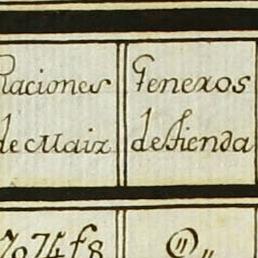 Raciones
de Maiz
Generos
de tienda
7974f8
0"